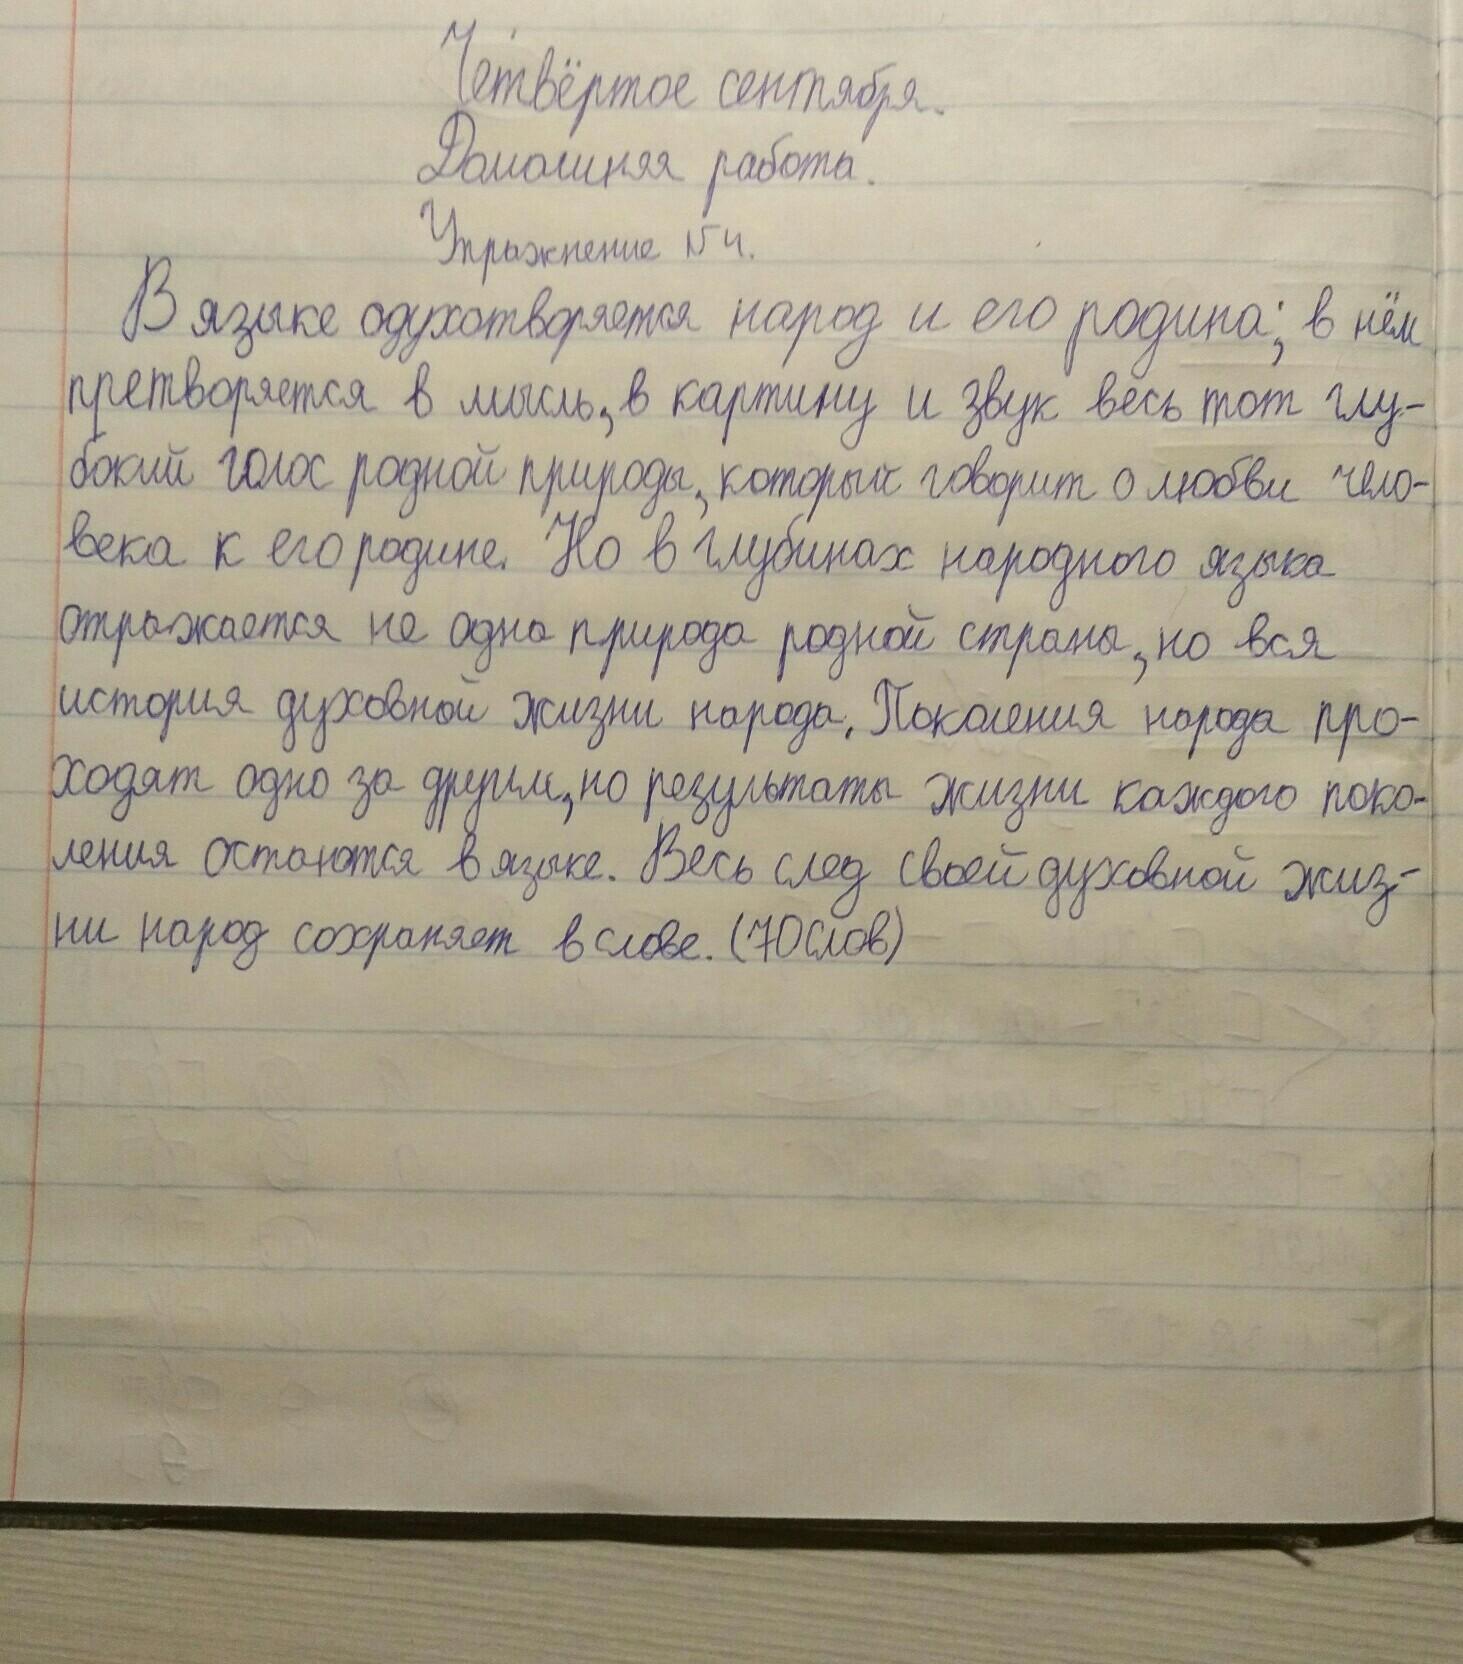 Четвёртое сентября.
Домашняя работа.
Упражнение №4.
В языке одухотворяется народ и его родина; в нём
претворяется в мысль, в картину и звук весь тот глу-
бокий голос родной природы, который говорит о любви чело-
века к его родине. Но в глубинах народного языка
отражается не одна природа родной страны, но вся
история духовной жизни народа. Поколения народа про-
ходят одно за другим, но результаты жизни каждого поко-
ления остаются в языке. Весь след своей духовной жиз-
ни народ сохраняет в слове. (70 слов)